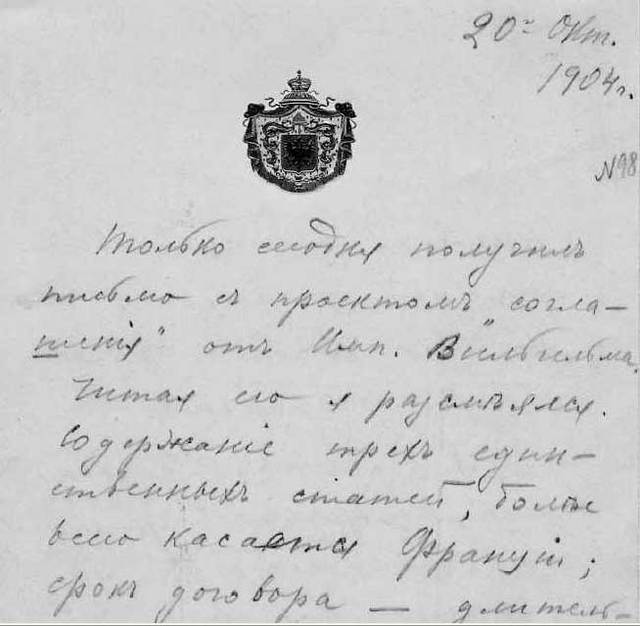 20го Окт.
1904 г.
№ 98
Только сегодня получилъ
письмо съ проектомъ „согла-
шенія“ отъ Имп. Вильгельма.
Читая его я разсмѣялся.
Содержаніе трехъ един-
ственныхъ статей, болѣе
всего касается Франціи;
срокъ договора — длитель-